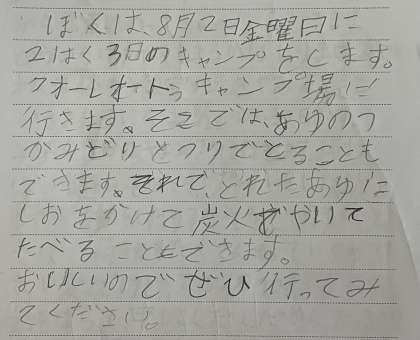 ぼくは、8月2日金曜日に
2はく3日のキャンプをします。
クオーレオートうキャンプ場に
行きます。そこでは、あゆのつ
かみどりとつりでとることも
できます。それで、どれたあゆに
しおをかけて炭火でやいて
たべることもできます。
おいしいのでぜひ行ってみ
てください。